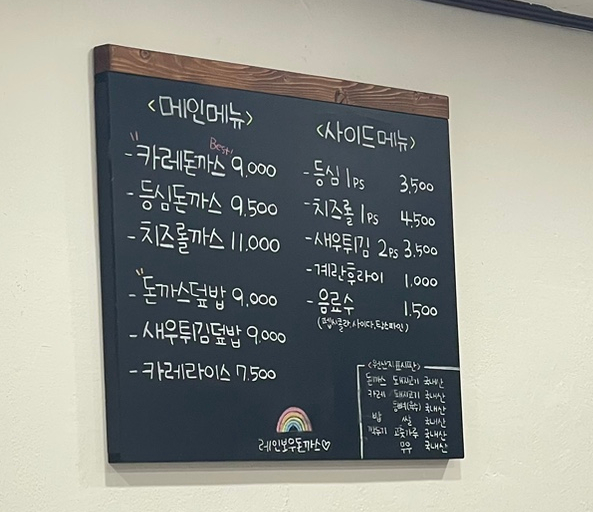 <메인메뉴>
Best!
- 카레돈까스 9,000
- 등심돈까스 9,500
- 치즈롤까스 11,000
- 돈까스덮밥 9,000
- 새우튀김덮밥 9,000
- 카레라이스 7,500
레인보우돈까스♡
<사이드메뉴>
- 등심 1ps 3,500
- 치즈롤 1ps 4,500
- 새우튀김 2ps 3,500
- 계란후라이 1,000
- 음료수 1,500
(펩시콜라, 사이다, 탐스파인)
<원산지표시판>
돈까스 돼지고기 국내산
카레 돼지고기 국내산
국내산
밥 쌀 국내산
깍두기 고춧가루 국내산
무우 국내산